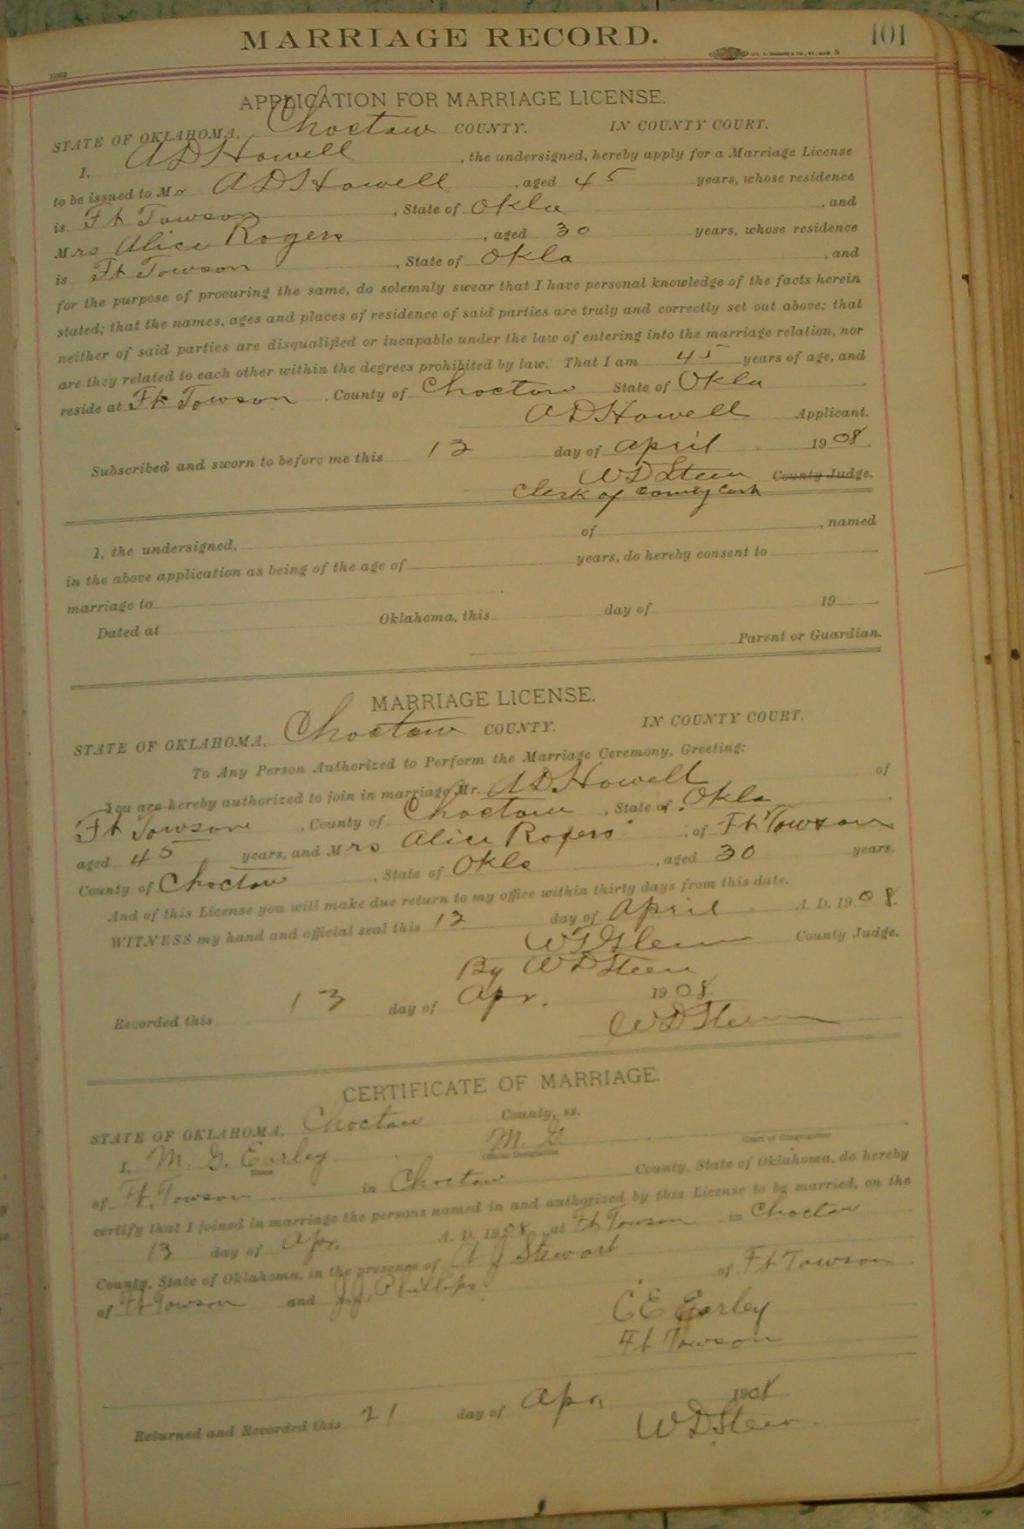 MARRIAGE RECORD.
101
APPLICATION FOR MARRIAGE LICENSE.
STATE OF OKLAHOMA, Choctaw COUNTY. IN COUNTY COURT.
I, A D Howell, the undersigned, hereby apply for a Marriage License
to be issued to Mr A D Howell, aged 45 years, whose residence
is Ft Towson, State of Okla, and
Mrs Alice Rogers, aged 30 years, whose residence
is Ft Towson, State of Okla, and
for the purpose of procuring the same, do solemnly swear that I have personal knowledge of the facts herein
stated; that the names, ages and places of residence of said parties are truly and correctly set out above; that
neither of said parties are disqualified or incapable under the law of entering into the marriage relation, nor
are they related to each other within the degrees prohibited by law. That I am 45 years of age, and
reside at Ft Towson, County of Choctaw State of Okla
A D Howell Applicant.
Subscribed and sworn to before me this 13 day of April 1908.
W D Steen County Judge.
Clerk of County Cort
I, the undersigned, of , named
in the above application as being of the age of years, do hereby consent to
marriage to
Dated at Oklahoma, this day of 19
Parent or Guardian.
MARRIAGE LICENSE.
STATE OF OKLAHOMA, Choctaw COUNTY. IN COUNTY COURT.
To Any Person Authorized to Perform the Marriage Ceremony, Greeting:
You are hereby authorized to join in marriage Mr. A D Howell of
Ft Towson, County of Choctaw, State of Okla
aged 45 years, and Mrs Alice Rogers, of Ft Towson
County of Choctaw, State of Okla, aged 30 years.
And of this License you will make due return to my office within thirty days from this date.
WITNESS my hand and official seal this 13 day of April A. D. 1908.
W T Glenn County Judge.
By W D Steen
Recorded this 13 day of Apr. 1908.
W D Steen
CERTIFICATE OF MARRIAGE.
STATE OF OKLAHOMA, Choctaw County, ss.
I, M. G. Earley M. G
Name Official Designation Court or Congregation
of Ft. Towson in Choctaw County, State of Oklahoma, do hereby
certify that I joined in marriage the persons named in and authorized by this License to be married, on the
13 day of Apr. A. D. 1908, at Ft Towson in Choctaw
County, State of Oklahoma, in the presence of A J Stewart of Ft Towson
of Ft Towson and J. J. Phillips
C E Earley
Ft Towson
Returned and Recorded this 21 day of Apr, 1908
W D Steen